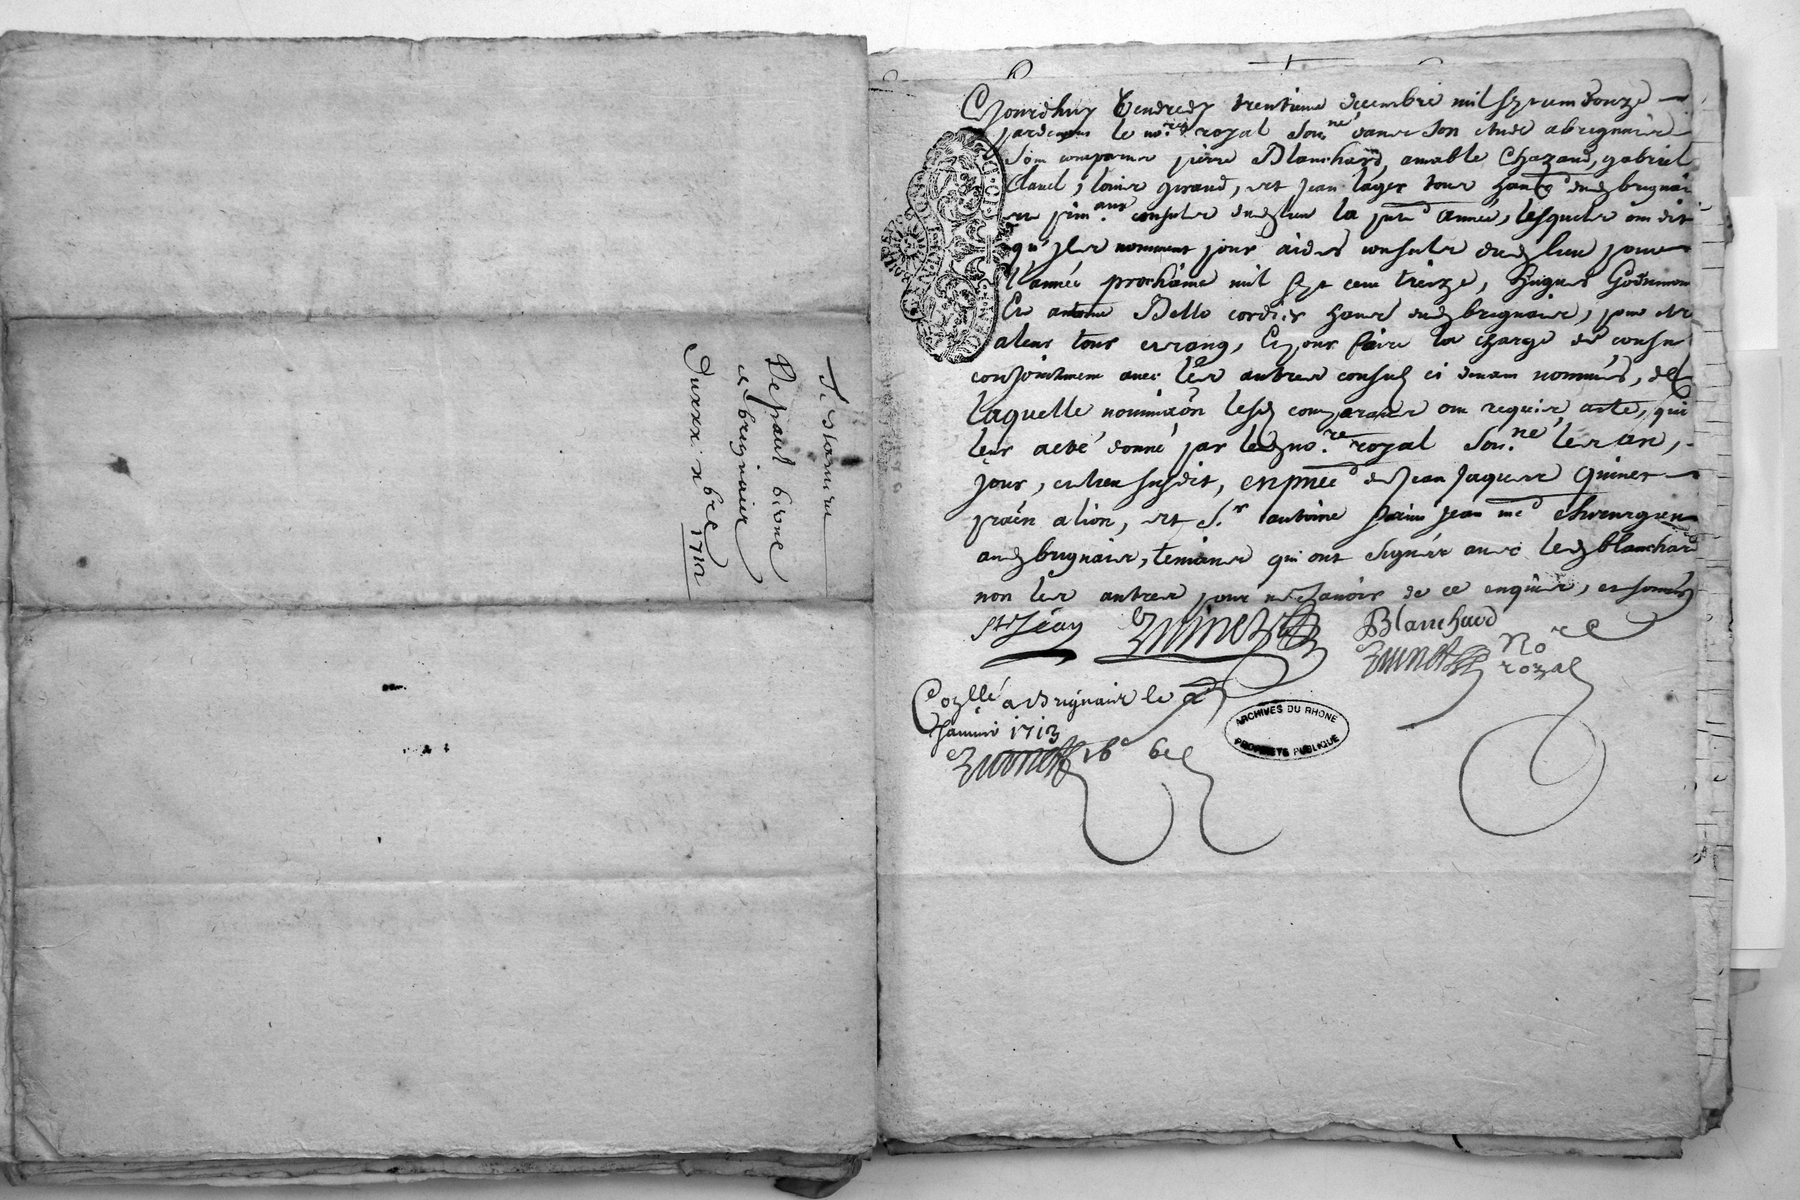 Testament
De paul bione
de brignair
Du xxx xbre
1712
Cejourdhuy Vendredy trentieme decembre mil sept cent douze
pardevant le nore royal sousne dans son etude a brignair
sont comparus pierre Blanchard, amable Chazaud, gabriel
Clauel, Louis giraud, et jean lager tous hants dud brignair
consuls dud lieu la pnte année, lesquels ont dit
qu'jls nomment pour consuls dud lieu pour
l'année prochaine mil sept cent treize, hugues
Et antoine Bello cordier hants dud brignair, pour
a leur tour et rang, Et pour faire la charge de consul
conjointement avec les autres consuls ci devant nommés, de
laquelle nomination lesd comparants ont requis acte, qui
leur a eté donné par led nore royal sousne les an,
jour, et lieu susdit, en pnce de jean jaques quinet
praen a lion, et Sr antoine saint jean me chirurgien
aud brignair, temoins qui ont signé avec led blanchard
non les autres pour ne sçavoir de ce enquis, et sommés
St Jean Quinet Blanchard
Quinet Nore
royal
Conllé a Brignair le
Janvier 1713